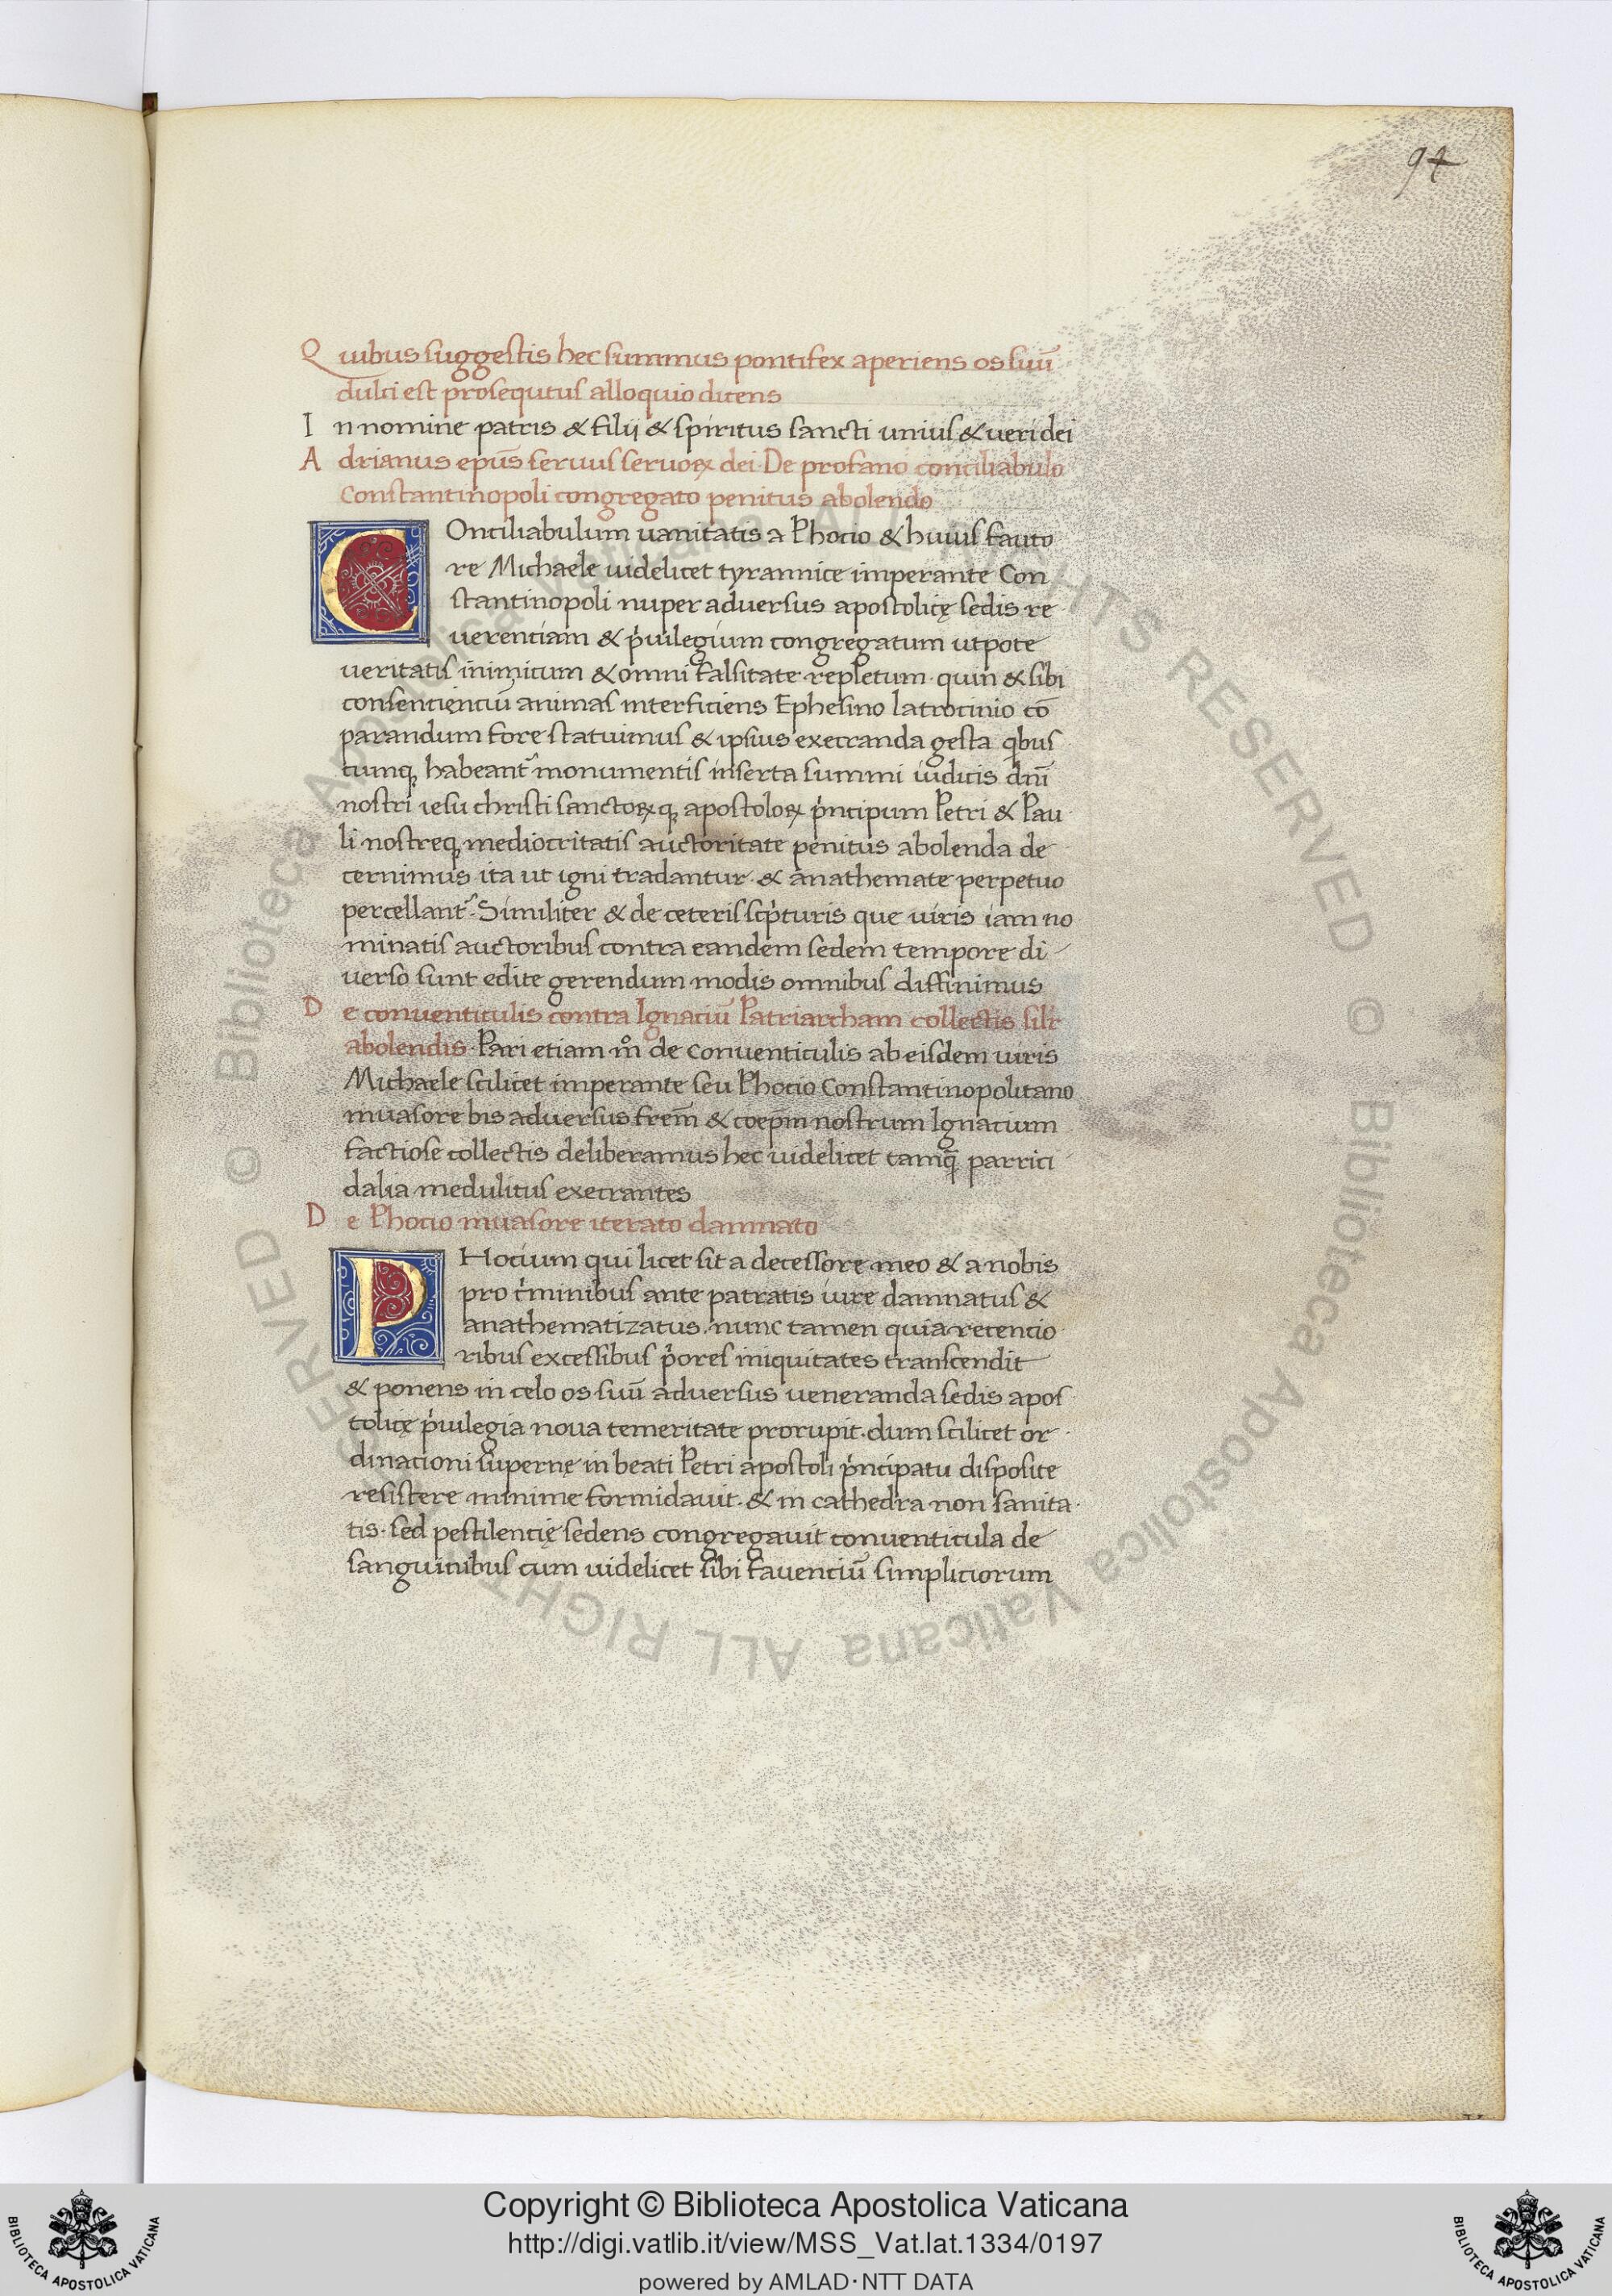 94
Quibus suggestis hec summus pontifex aperiens os suū
dulci est prosequutus alloquio dicens
In nomine patris & filii & spiritus sancti unius & veri dei
Adrianus epūs servus servoꝝ dei De profano conciliabulo
Constantinopoli congregato penitus abolendo
COnciliabulum vanitatis a Phocio & huius fauto
re Michaele videlicet tyrannice imperante Con
stantinopoli nuper adversus apostolicę sedis re
verenciam & p̓vilegium congregatum utpote
veritatis inimicum & omni falsitate repletum· quin & sibi
consencienciū animas interficiens Ephesino latrocinio cō
parandum fore statuimus & ipsius execranda gesta qbus
cumqꝫ habeant᷑ monumentis inserta summi iudicis dn̄i
nostri iesu christi sanctoꝝqꝫ apostoloꝝ p̓ncipum Petri & Pau
li nostreqꝫ mediocritatis auctoritate penitus abolenda de
cernimus ita ut igni tradantur· & anathemate perpetuo
percellant᷑· Similiter & de ceteris scp̓turis que viris iam no
minatis auctoribus contra eandem sedem tempore di
verso sunt edite gerendum modis omnibus diffinimus
De conventiculis contra Ignaciū Patriarcham collectis silr
abolendis· Pari etiam m̊ de conventiculis ab eisdem viris
Michaele scilicet imperante seu Phocio Constantinopolitano
invasore bis adversus frem̄ & coepm̄ nostrum Ignacium
factiose collectis deliberamus hec videlicet tamq̄ parrici
dalia medulitus execrantes
De Phocio invasore iterato damnato
PHocium qui licet sit a decessore meo & a nobis
pro c̓minibus ante patratis iure damnatus &
anathematizatus· nunc tamen quia recentio
ribus excessibus p̓ores iniquitates transcendit
& ponens in celo os suū adversus veneranda sedis apos
tolicę p̓vilegia nova temeritate prorupit· dum scilicet or
dinacioni supernę in beati Petri apostoli p̓ncipatu disposite
resistere minime formidavit· & in cathedra non sanita
tis· sed pestilencię sedens congregavit conventicula de
sanguinibus cum videlicet sibi favenciū simpliciorum
© Biblioteca Apostolica Vaticana ALL RIGHTS RESERVED © Biblioteca Apostolica Vaticana ALL RIGHTS RESERVED
Copyright © Biblioteca Apostolica Vaticana
http://digi.vatlib.it/view/MSS_Vat.lat.1334/0197
powered by AMLAD·NTT DATA
BIBLIOTECA APOSTOLICA VATICANA
BIBLIOTECA APOSTOLICA VATICANA